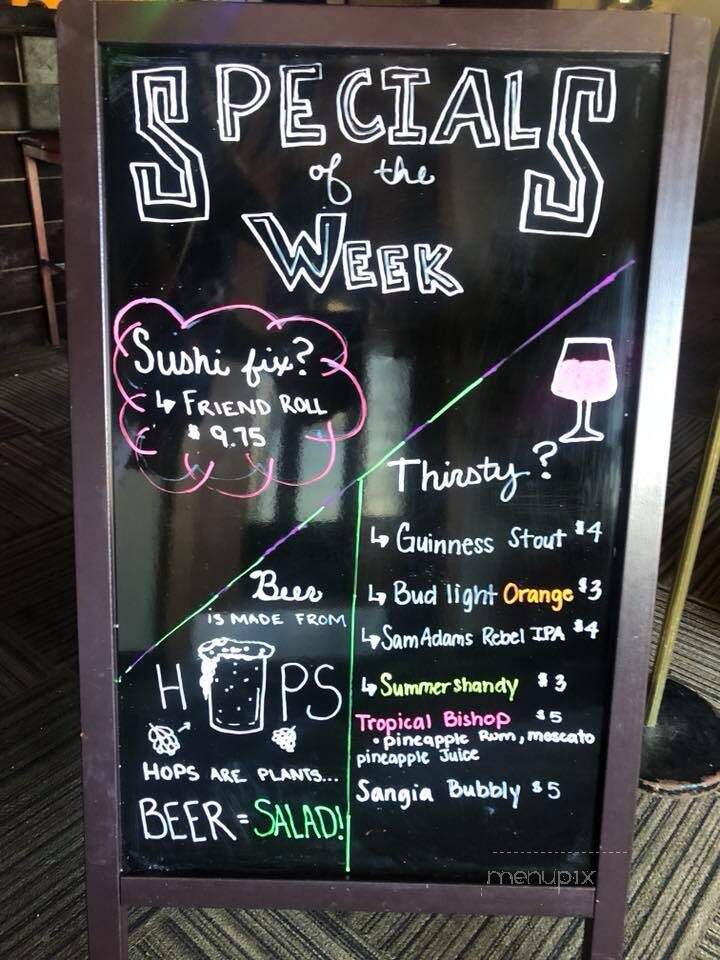 SPECIALS
of the
WEEK
Sushi fix?
↳ FRIEND ROLL
$9.75
Thirsty?
↳ Guinness Stout $4
↳ Bud light Orange $3
↳ Sam Adams Rebel IPA $4
↳ Summer shandy $3
Tropical Bishop $5
• pineapple Rum, moscato
pineapple Juice
Sangia Bubbly $5
Beer
IS MADE FROM
HOPS
HOPS ARE PLANTS...
BEER = SALAD!
menupix